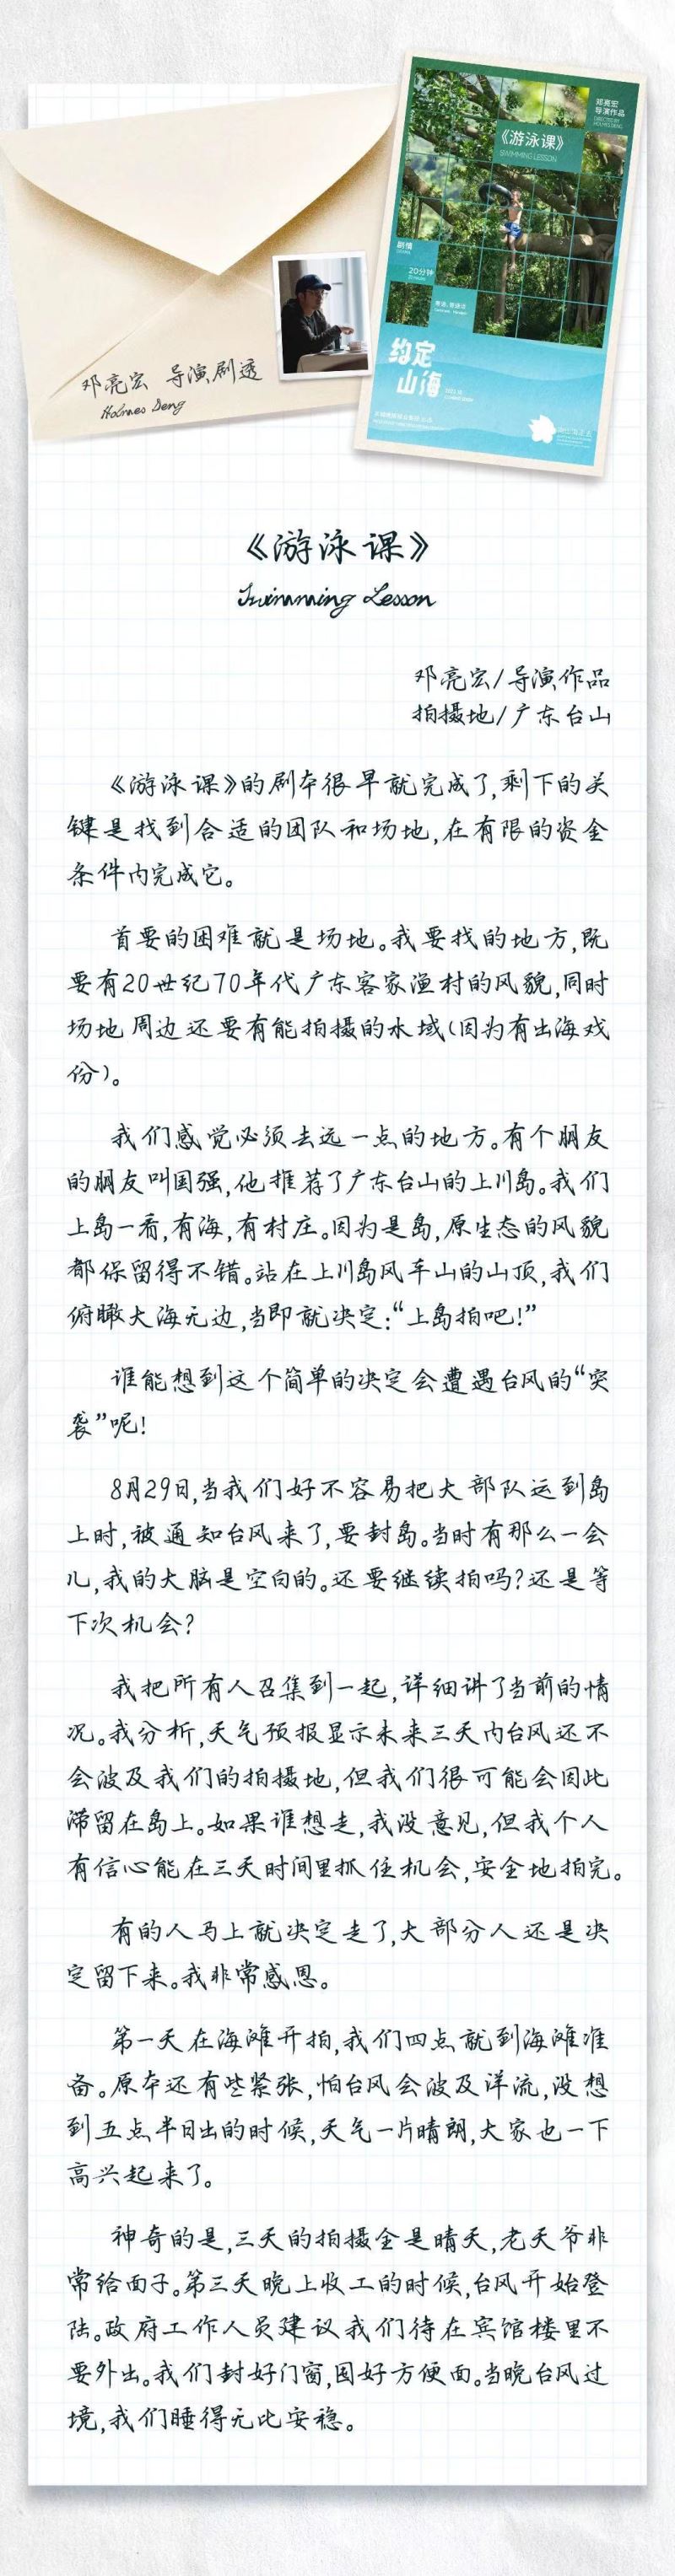 邓亮宏
导演作品
DIRECTED BY
HOLMES DENG
《游泳课》
SWIMMING LESSON
剧情
DRAMA
20分钟
20 minutes
约定
山海
邓亮宏 导演剧透
Holmes Deng
《游泳课》
Swimming Lesson
邓亮宏/导演作品
拍摄地/广东台山
《游泳课》的剧本很早就完成了,剩下的关
键是找到合适的团队和场地,在有限的资金
条件内完成它。
首要的困难就是场地。我要找的地方,既
要有20世纪70年代广东客家渔村的风貌,同时
场地周边还要有能拍摄的水域(因为有出海戏
份)。
我们感觉必须去远一点的地方。有个朋友
的朋友叫国强,他推荐了广东台山的上川岛。我们
上岛一看,有海,有村庄。因为是岛,原生态的风貌
都保留得不错。站在上川岛风车山的山顶,我们
俯瞰大海无边,当即就决定:“上岛拍吧!”
谁能想到这个简单的决定会遭遇台风的“突
袭”呢!
8月29日,当我们好不容易把大部队运到岛
上时,被通知台风来了,要封岛。当时有那么一会
儿,我的大脑是空白的。还要继续拍吗?还是等
下次机会?
我把所有人召集到一起,详细讲了当前的情
况。我分析,天气预报显示未来三天内台风还不
会波及我们的拍摄地,但我们很可能会因此
滞留在岛上。如果谁想走,我没意见,但我个人
有信心能在三天时间里抓住机会,安全地拍完。
有的人马上就决定走了,大部分人还是决
定留下来。我非常感恩。
第一天在海滩开拍,我们四点就到海滩准
备。原本还有些紧张,怕台风会波及洋流,没想
到五点半日出的时候,天气一片晴朗,大家也一下
高兴起来了。
神奇的是,三天的拍摄全是晴天,老天爷非
常给面子。第三天晚上收工的时候,台风开始登
陆。政府工作人员建议我们待在宾馆楼里不
要外出。我们封好门窗,囤好方便面。当晚台风过
境,我们睡得无比安稳。